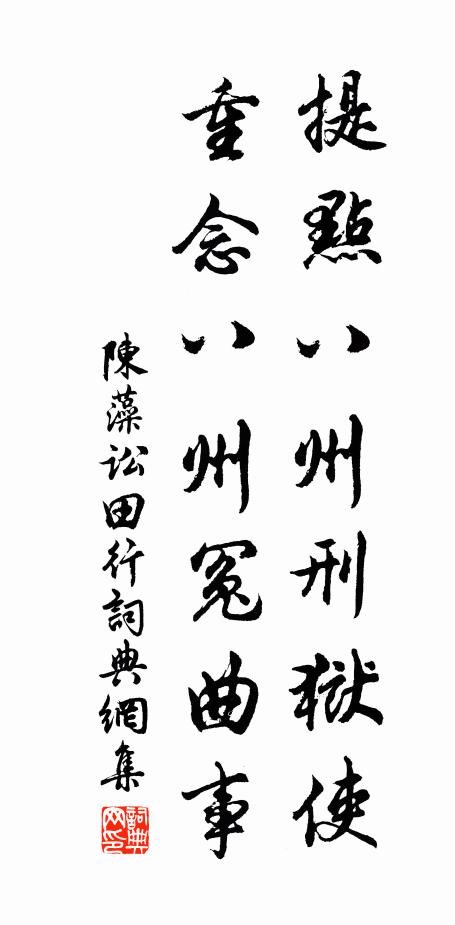 提點八州刑獄使
重念八州冤曲事
陳藻訟田行詞典網集
詞典网印